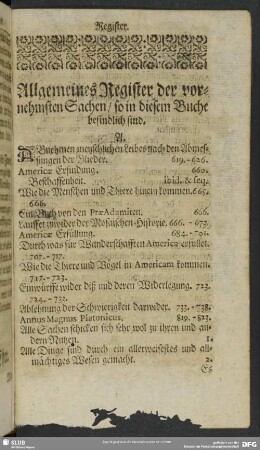 Register.
Allgemeines Register der vor-
nehmsten Sachen / so in diesem Buche
befindlich sind.
A.
menschlichen Leibes nach den Abmes-
sungen der Glieder. 619.-626.
Americæ Erfindung. 660.
Beschaffenheit. ibid. & seq.
Wie die Menschen und Thiere hinein kommen. 665.
666.
Ein Buch von den Præadamiten. 666.
Laufft zuwider der Mosaischen-Historie. 666.-
Americæ Erfüllung. 684.-
Durch was für Wanderschafften America erfüllet.
707.-717.
Wie die Thiere und Vögel in Americam kommen.
717.-723.
Einwürffe wider diß und deren Widerlegung. 723.
724.-732.
Ablehnung der Schwierigkeit darwider. 733.-738.
Annus Magnus Platonicus. 819.-823.
Alle Sachen schicken sich sehr wol zu ihren und an-
dern Nutzen. 1.
Alle Dinge sind durch ein allerweisestes und all-
mächtiges Wesen gemacht. 2.
Es
SLUB
DFG